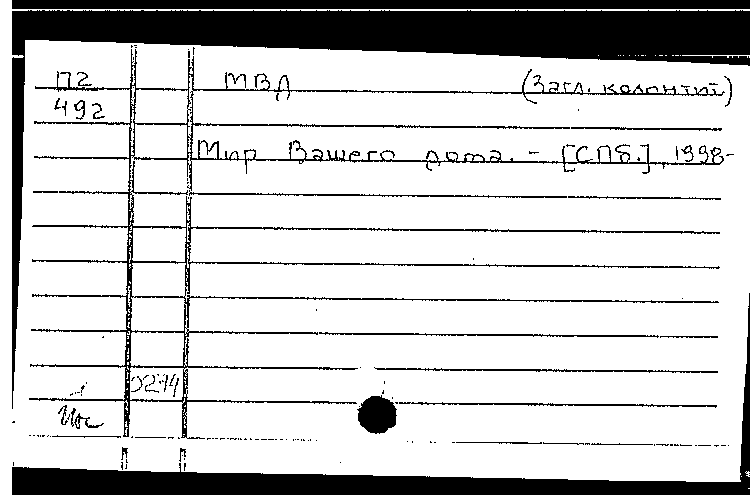 П2 МВД (Загл. колонтит)
492
Мир Вашего дома. - [СПб.], 1998-
0214